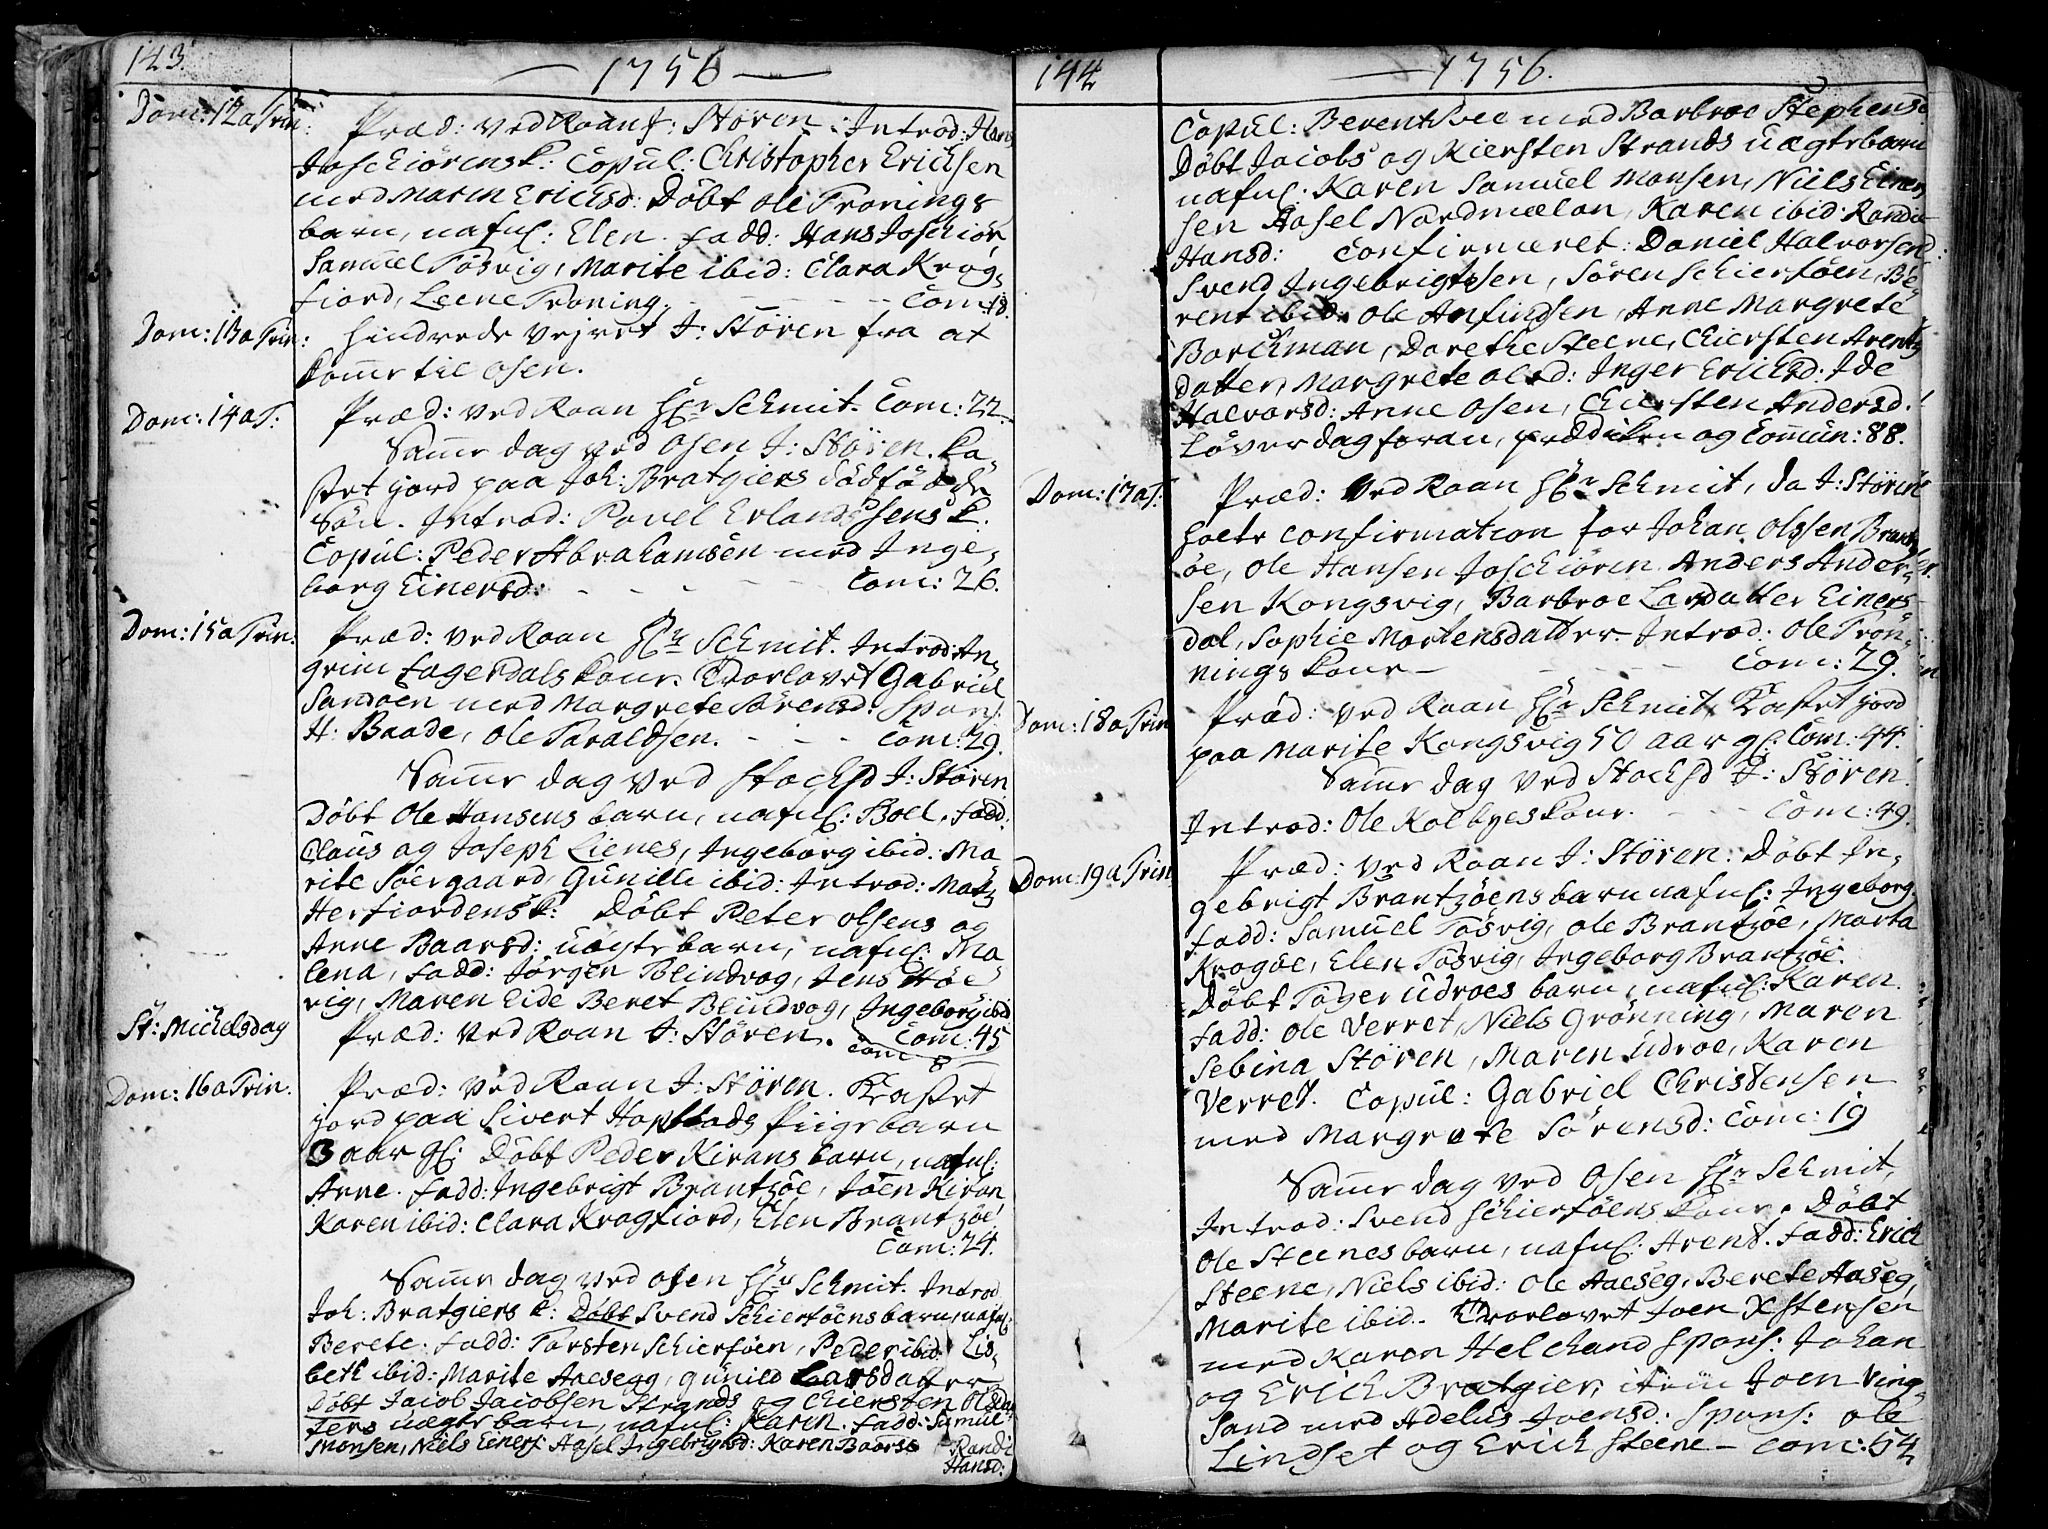 143.
1756
Dom: 12 a Trin:
Præd: ved Roan J: Stören. Introd: Hans
Joschiörens K: Copul: Christopher Erichsen
med Marin Erichsd: Döbt Ole Tronings
barn, nafnl: Elen. fadd: Hans Joschiör,
Samuel Tösvig, Marite ibid: Clara Krog-
fiord, Leene Troning. Com: 18.
Dom: 13 a Trin:
hindrede Vejret J: Stören fra at
komme til Osen.
Dom: 14 a T:
Præd: ved Roan Hr Schmit. Com: 22.
Samme dag ved Osen J: Stören. Ka-
stet jord paa Joh: Bratgiers dödfödde
Sön. Introd: Povel Erlandsens K.
Copul: Peder Abrahamsen med Inge-
borg Einersd: Com: 26.
Dom: 15 a Trin:
Præd: ved Roan Hr Schmit. Introd: An-
grim Fagerdals Kone. Trorlovet Gabriel
Sandöen med Margrete Sörensd: Spons:
H: Baade, Ole Taraldsen. Com: 29.
Samme dag ved Stochsd J: Stören
Döbt Ole Hansens barn, nafnl: Boel. fadd:
Claus og Joseph Lienes, Ingeborg ibid: Ma-
rite Söergaard, Gunille ibid: Introd: Mats
Herfiordens K: Döbt Peter Olsens og
Anne Baarsd: uægte barn, nafnl: Ma-
lena, fadd: Jörgen Blindvog, Jens Höe-
vig, Maren Eide Beret Blindvog, Ingeborg ibid
Com: 45
St: Michelsdag
Præd: ved Roan J: Stören. Com 8
Dom: 16 a Trin.
Præd: ved Roan J: Stören. Kastet
jord paa Sivert Hopstads Piigebarn
3 aar gl: Döbt Peder Kirans barn, nafnl:
Anne. fadd: Ingebrigt Brantzöe, Joen Kiran
Karen ibid: Clara Krogfiord, Elen Brantzöe.
Com: 24.
Samme dag ved Osen Hr Schmit. Introd
Joh: Bratgiers K: Döbt Svend Schiersöens barn, nafnl:
Berete. fadd: Torsten Schiersöen, Peder ibid Lis-
beth ibid: Marite Aaesegg, Gunild Larsdatter
Döbt Jacob Jacobsen Strands og Chiersten Olsdat-
ters uægte barn, nafnl: Karen. fadd: Samuel
Monsen, Niels Einers: Aasel Ingebrigtsd: Karen Baarsd Randi
Hansd:
144
1756.
Copul: Berent Svee med Barbroe Stephensd
Döbt Jacobs og Kiersten Strands uægte barn
nafnl. Karen Samuel Monsen, Niels Einer-
sen Aasel Nordmelan, Karen ibid: Randi
Hansd: Confirmeret: Daniel Halvorsen
Svend Ingebrigtsen, Sören Schiersöen, Be-
rent ibid. Ole Anfindsen, Anne Margrete
Borchman, Dorethe Steene, Chiersten Arents
datter, Margrete Olsd: Inger Erichsd: Ide
Halvorsd: Anne Osen, Chiersten Andersd.
Löverdag foran, prædiken og Commun: 88.
Dom: 17 a T.
Præd: ved Roan Hr Schmit, da J: Stören
holte Confirmation for Johan Olssen Brantz-
öe, Ole Hansen Joschiören Anders Ander-
sen Kongsvig, Barbroe Larsdatter Einers-
dal, Sophie Mortensdatter. Introd: Ole Trön-
nings Kone Com: 29.
Dom: 18 a Trin
Præd: ved Roan Hr Schmit. Kastet jord
paa Marite Kongsvig 50 aar gl: Com: 44.
Samme dag ved Stochsd J: Stören.
Introd: Ole Kolbyes Kone. Com: 49.
Dom: 19 a Trin
Præd: ved Roan J: Stören: Döbt In-
gebrigt Brantzöens barn nafnl: Ingeborg.
fadd: Samuel Tösvig, Ole Brantzöe, Marta
Krogöe, Elen Tösvig, Ingeborg Brantzöe.
Döbt Töger Udroes barn, nafnl: Karen.
fadd: Ole Verret, Niels Grönning, Maren
Sebina Stören, Maren Udroe, Karen
Verret. Copul: Gabriel Christensen
med Margrete Sörensd: Com: 19
Samme dag ved Osen Hr Schmit,
Introd: Svend Schiersöens Kone. Döbt
Ole Steenes barn, nafnl: Arent. fadd: Erich
Steene, Niels ibid: Ole Aaeseg, Berete Aaseg,
Marite ibid. Trorlovet Joen Xstensen
med Karen Helchand Spons: Johan
og Erich Bratgier, item Joen Ving-
sand med Adelus Joensd: Spons: Ole
Lindset og Erich Steene - Com: 54